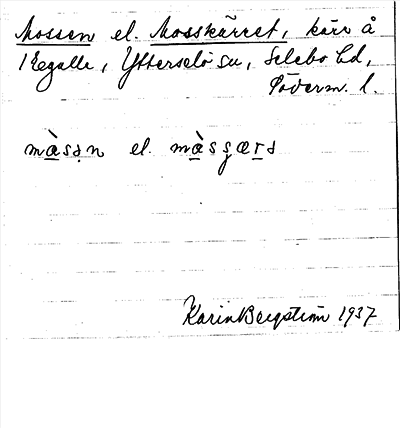 Mossen el. Mosskärret, kärr å
1 Egalle, Ytterselö sn, Selebo hd,
Söderm. l.
màsn el. màsʂærs
Karin Bergström 1937